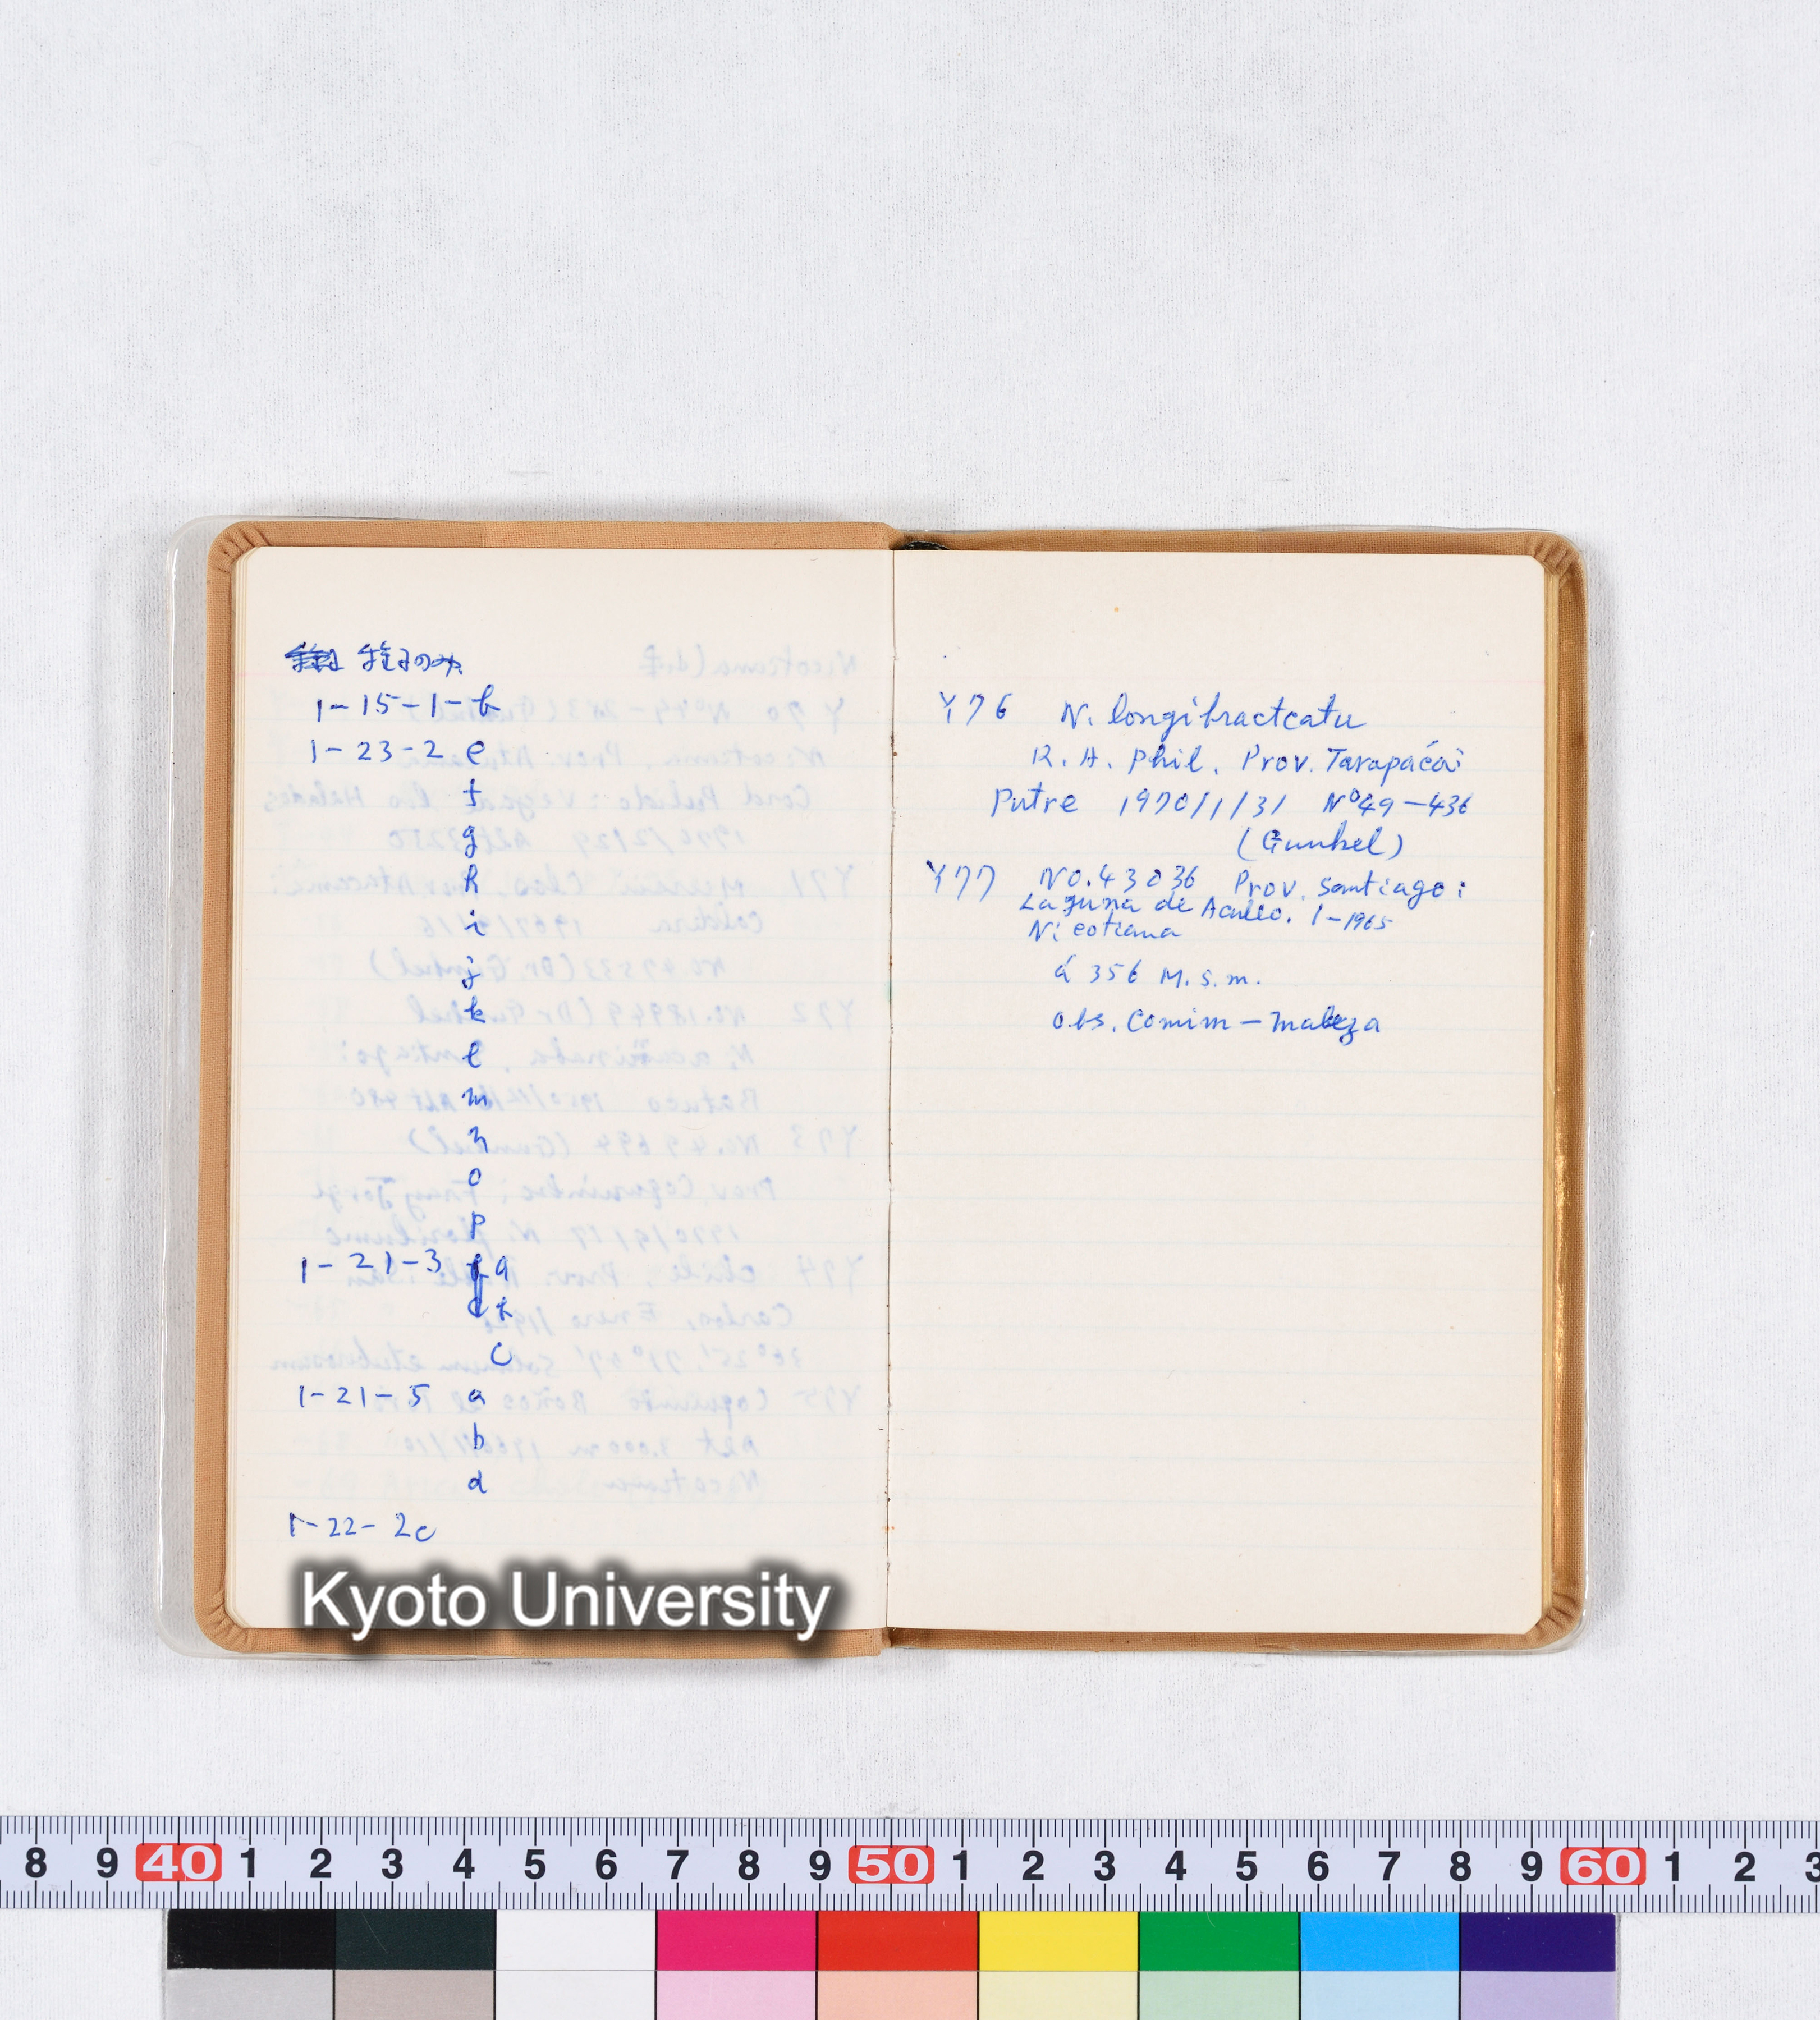 種子のみ
1-15-1-b
1-23-2 e
f
g
h
i
j
k
l
m
n
o
p
1-21-3 a
b
c
1-21-5 a
b
d
1-22-2c
Y76 N. longibracteatu
R. A. Phil. Prov. Tarapacá:
Putre 1970/1/31 Nº49-436
(Gunkel)
Y77 No.43036 Prov. Santiago:
Laguna de Aculeo. 1-1965
Nicotiana
á 356 M.s.m.
obs. Comim - maleza
Kyoto University
8 9 40 1 2 3 4 5 6 7 8 9 50 1 2 3 4 5 6 7 8 9 60 1 2 3